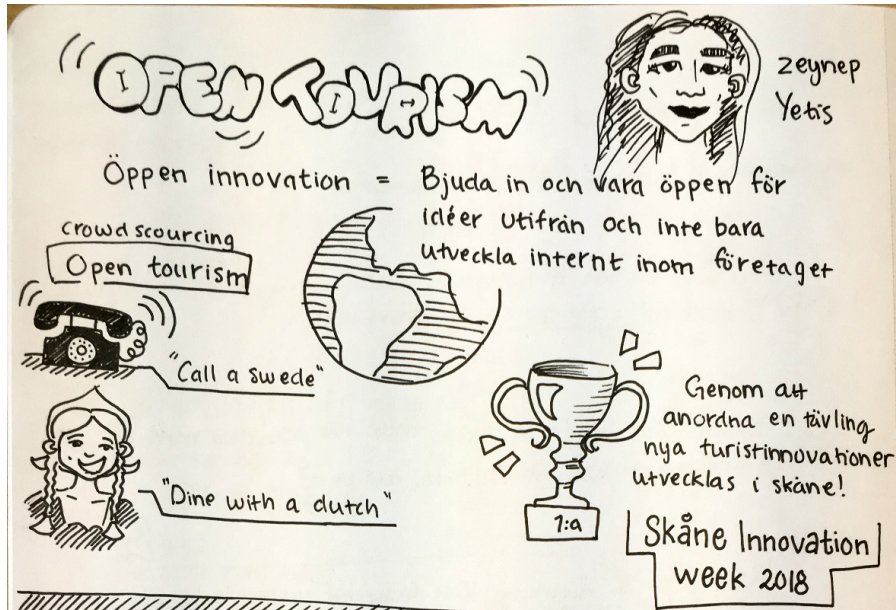 OPEN TOURISM
zeynep
Yetis
Öppen innovation = Bjuda in och vara öppen för
idéer utifrån och inte bara
utveckla internt inom företaget
crowdscourcing
Open tourism
"Call a swede"
"Dine with a dutch"
1:a
Genom att
anordna en tävling
nya turistinnovationer
utvecklas i skåne!
Skåne Innovation
week 2018